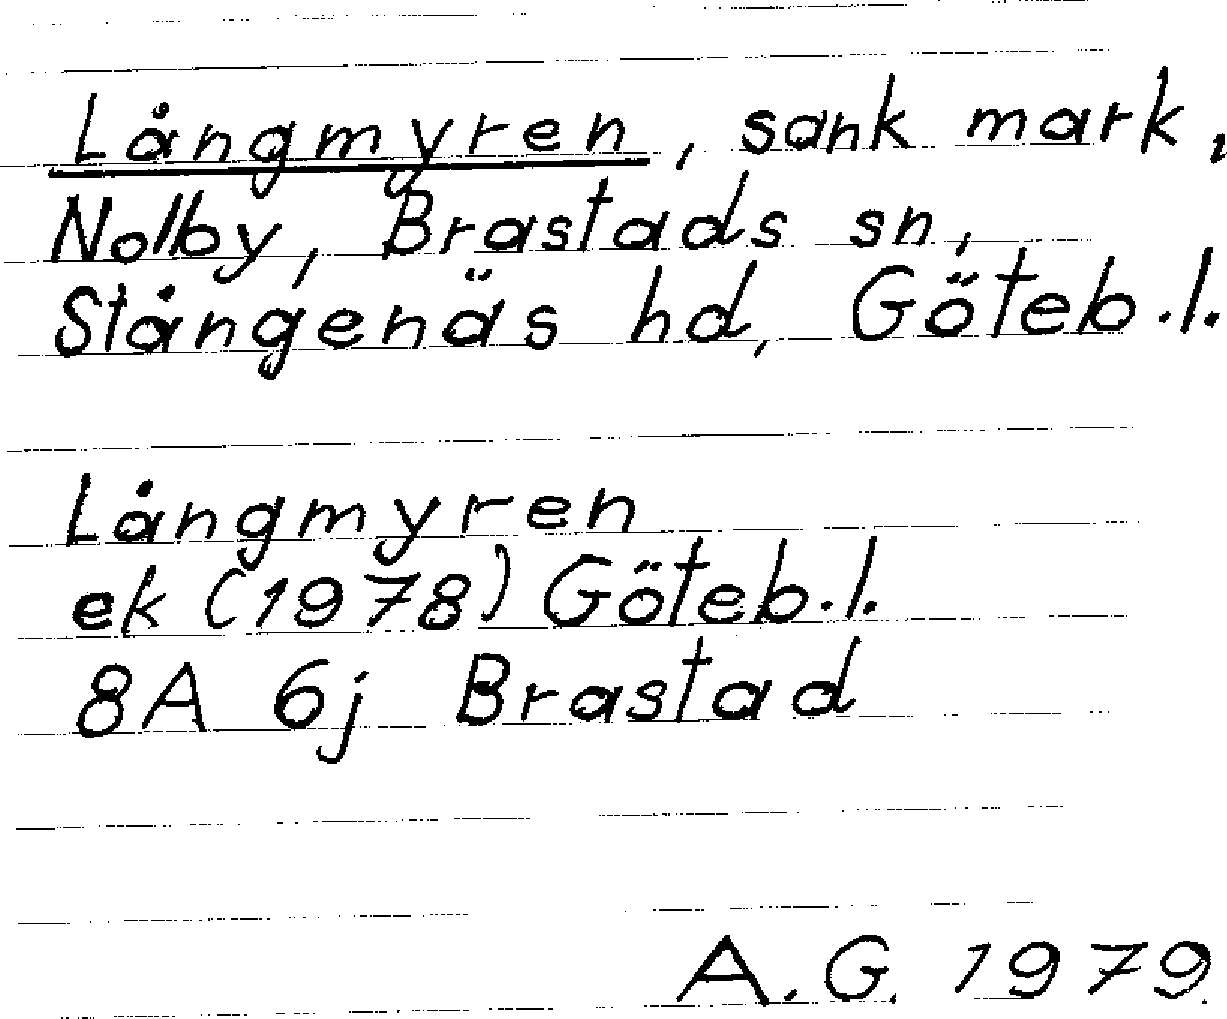 Långmyren, sank mark,
Nolby, Brastads sn,
Stångenäs hd, Göteb.l.
Långmyren
ek (1978) Göteb.l.
8A 6j Brastad
A.G. 1979.